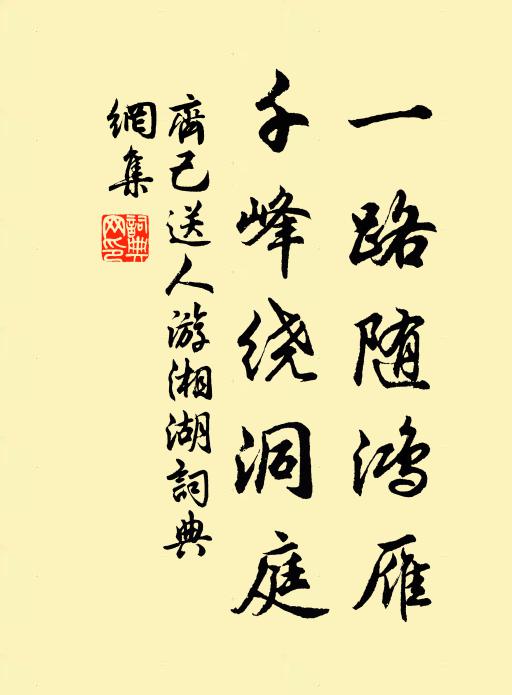 一路随鸿雁
千峰绕洞庭
齊己送人游湘湖詞典
網集
詞典
网印